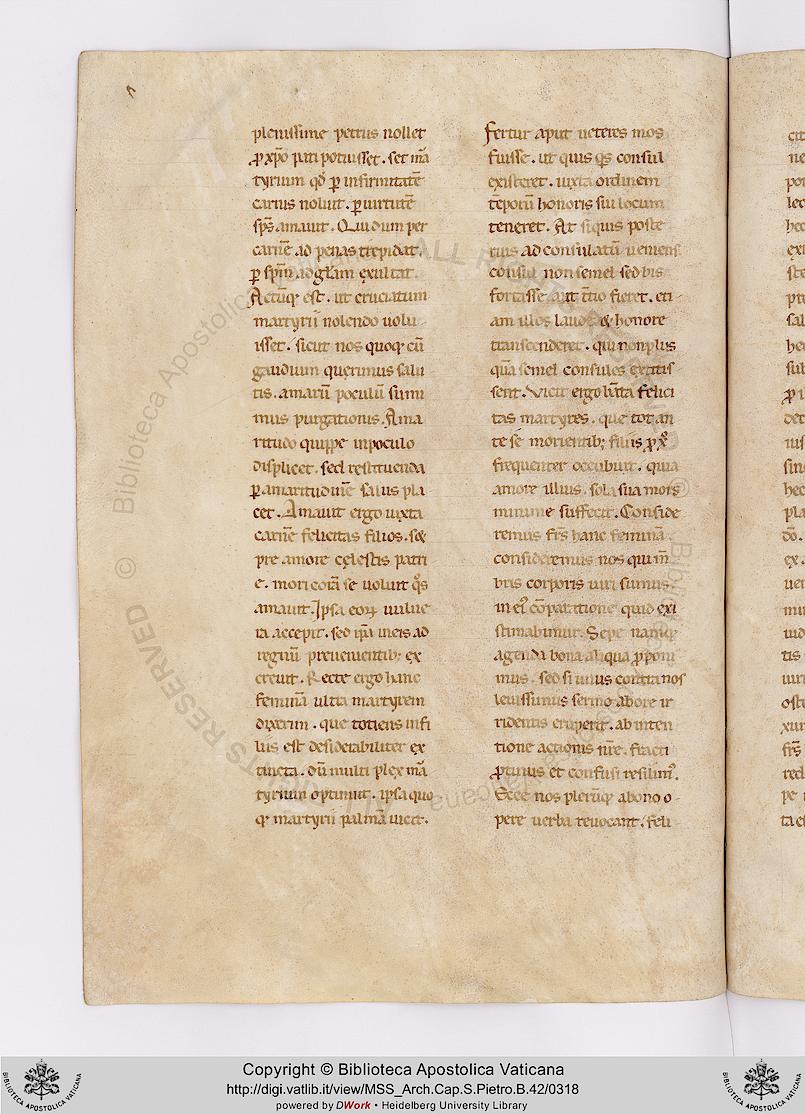 plenissime petrus nollet
ꝓ xp̄o pati potuisset. set ma
tyrium qd̄ ꝑ infirmitatē
carnis noluit. ꝑ uirtutē
sp̄s amauit. Qui dum per
carnē ad penas trepidat.
ꝑ sp̄m ad gl̄am exultat.
Actūq; est. ut cruciatum
martyrii nolendo uolu
isset. sicut nos quoq; cū
gaudium querimus salu
tis. amarū poculū sumi
mus purgationis. Ama
ritudo quippe in poculo
displicet. sed restituenda
ꝑ amaritudinē salus pla
cet. Amauit ergo iuxta
carnē felicitas filios. s&
pre amore cęlestis patri
e. mori corā se uoluit q̊s
amauit. Ipsa eoꝝ uulne
ra accepit. sed ip̄a in eis ad
regnū preueuientib; ex
creuit. Recte ergo hanc
feminā ultra martyrem
dixerim. que totiens in fi
liis est desiderabiliter ex
tincta. dū multiplex ma
tyrium optinuit. ipsa quo
q; martyrii palmā uicit.
Fertur aput ueteres mos
fuisse. ut quis q̄s consul
existeret. iuxta ordinem
tēporū honoris sui locum
teneret. At si quis poste
rius ad consulatū ueniens
consul non semel sed bis
fortasse aut t̄tio fieret. eti
am illos laude & honore
transcenderet. qui non plus
quā semel consules extitis
sent. Vicit ergo bāta felici
tas martyres. que tot an
te se morientib; filiis ꝓ xp̄o
frequenter occubuit. quia
amore illius. sola sua mors
minime suffecit. Conside
remus frs̄ hanc feminā.
consideremus nos qui m̄
bris corporis uiri sumus.
in ei᾽ cōparatione quid exi
stimabimur. Sepe namq;
agenda bona aliqua ꝓponi
mus. sed si unus contra nos
leuissimus sermo ab ore ir
ridentis eruperit. ab inten
tione actionis nr̄e. fracti
ꝓtinus et confusi resilim᾽.
Ecce nos plerūq; a bono o
pere uerba reuocant. feli
Copyright © Biblioteca Apostolica Vaticana
http://digi.vatlib.it/view/MSS_Arch.Cap.S.Pietro.B.42/0318
powered by DWork • Heidelberg University Library
BIBLIOTECA APOSTOLICA VATICANA
BIBLIOTECA APOSTOLICA VATICANA